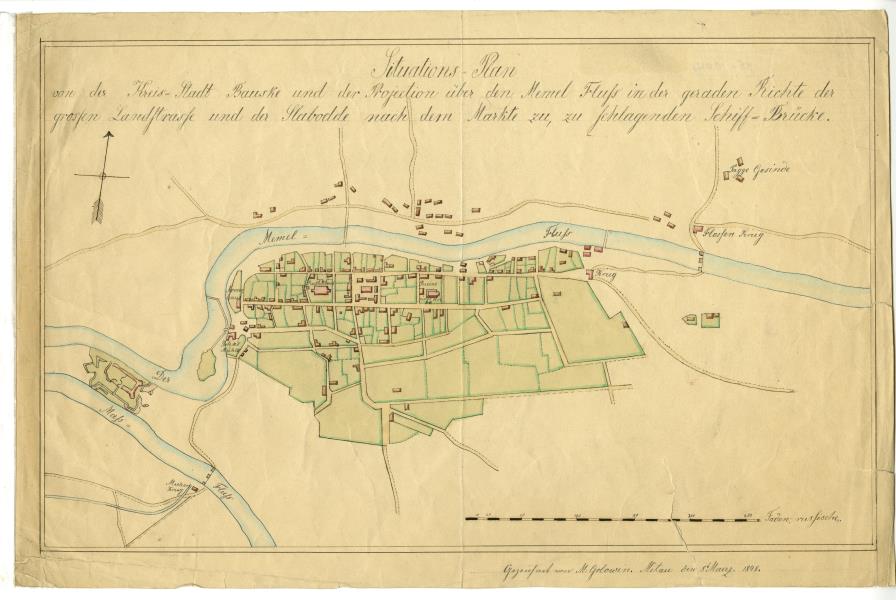 Situations-Plan
von der Kreis-Stadt Bauske und der Projection über den Memel Fluss in der geraden Richte der
grossen Landstrasse und der Slabodde nach dem Markte zu, zu schlagenden Schiff-Brücke.
Gesinde
Memel-
Fluss
Krug
Krug
Der
Muss-
Fluss
Krug
Faden, russische.
Gezeichnet von M. Golowin. Mitau den März